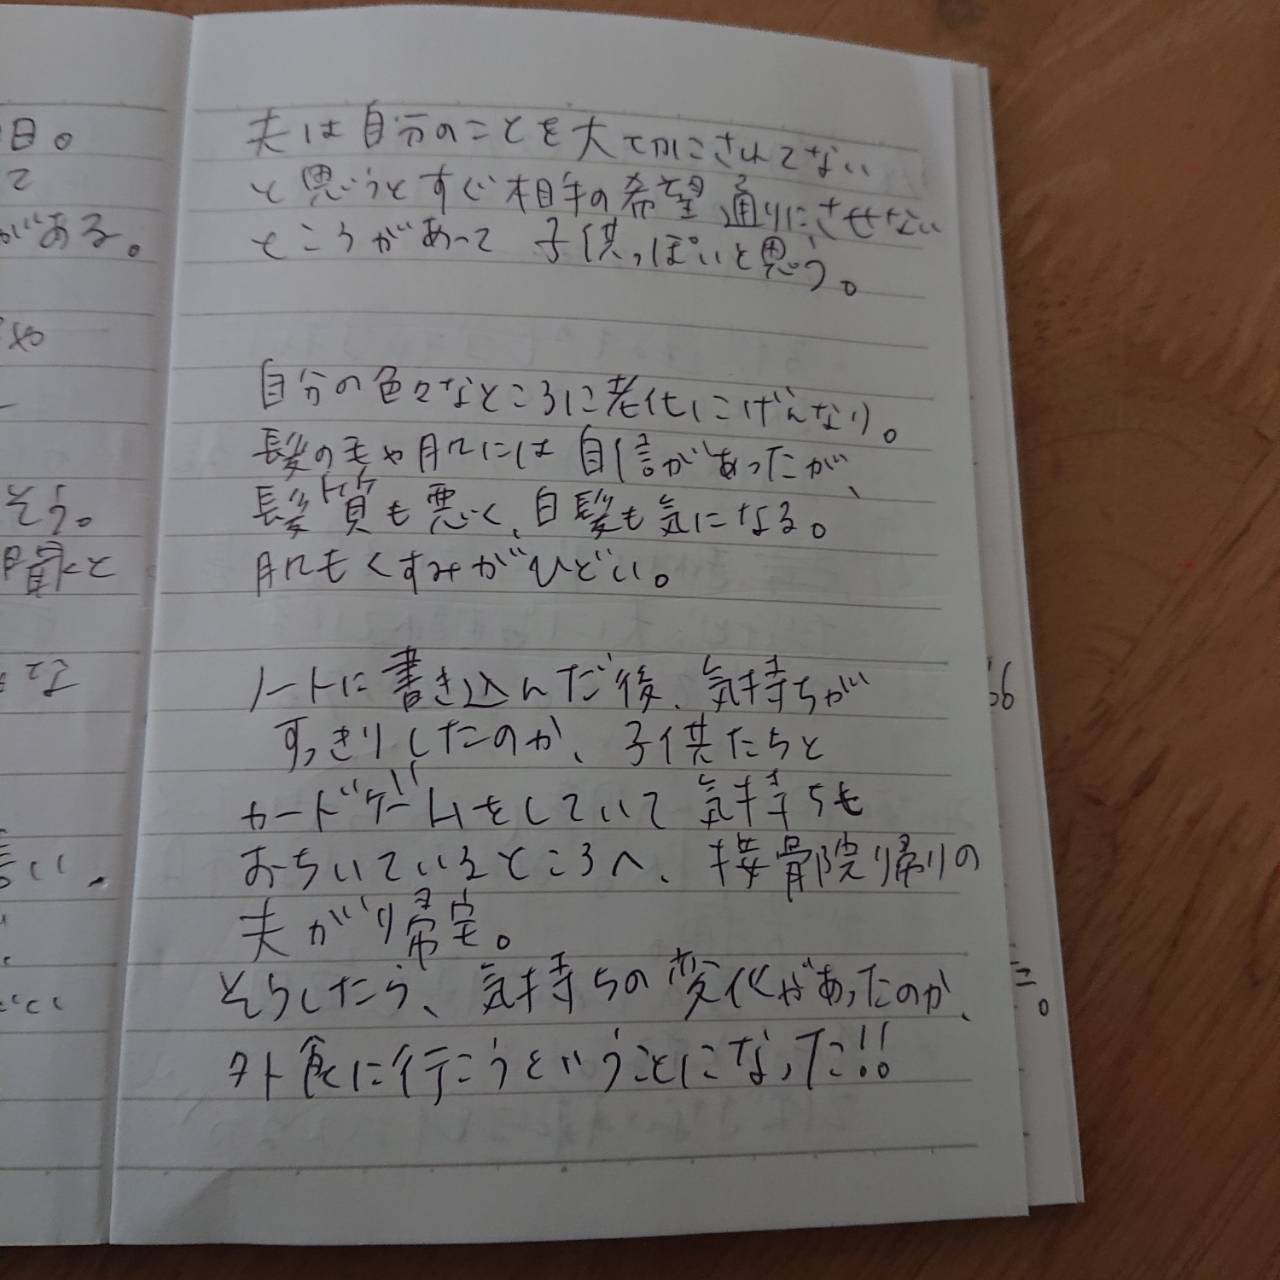 日。
て
がある。
や
そう。
聞くと
夫は自分のことを大切にされてない
と思うとすぐ相手の希望通りにさせない
ところがあって子供っぽいと思う。
自分の色々なところに老化にげんなり。
髪の毛や肌には自信があったが、
髪質も悪く、白髪も気になる。
肌もくすみがひどい。
ノートに書き込んだ後、気持ちが
すっきりしたのか、子供たちと
カードゲームをしていて気持ちも
おちいているところへ、接骨院帰りの
夫が帰宅。
そうしたら、気持ちの変化があったのか、
外食に行こうということになった!!